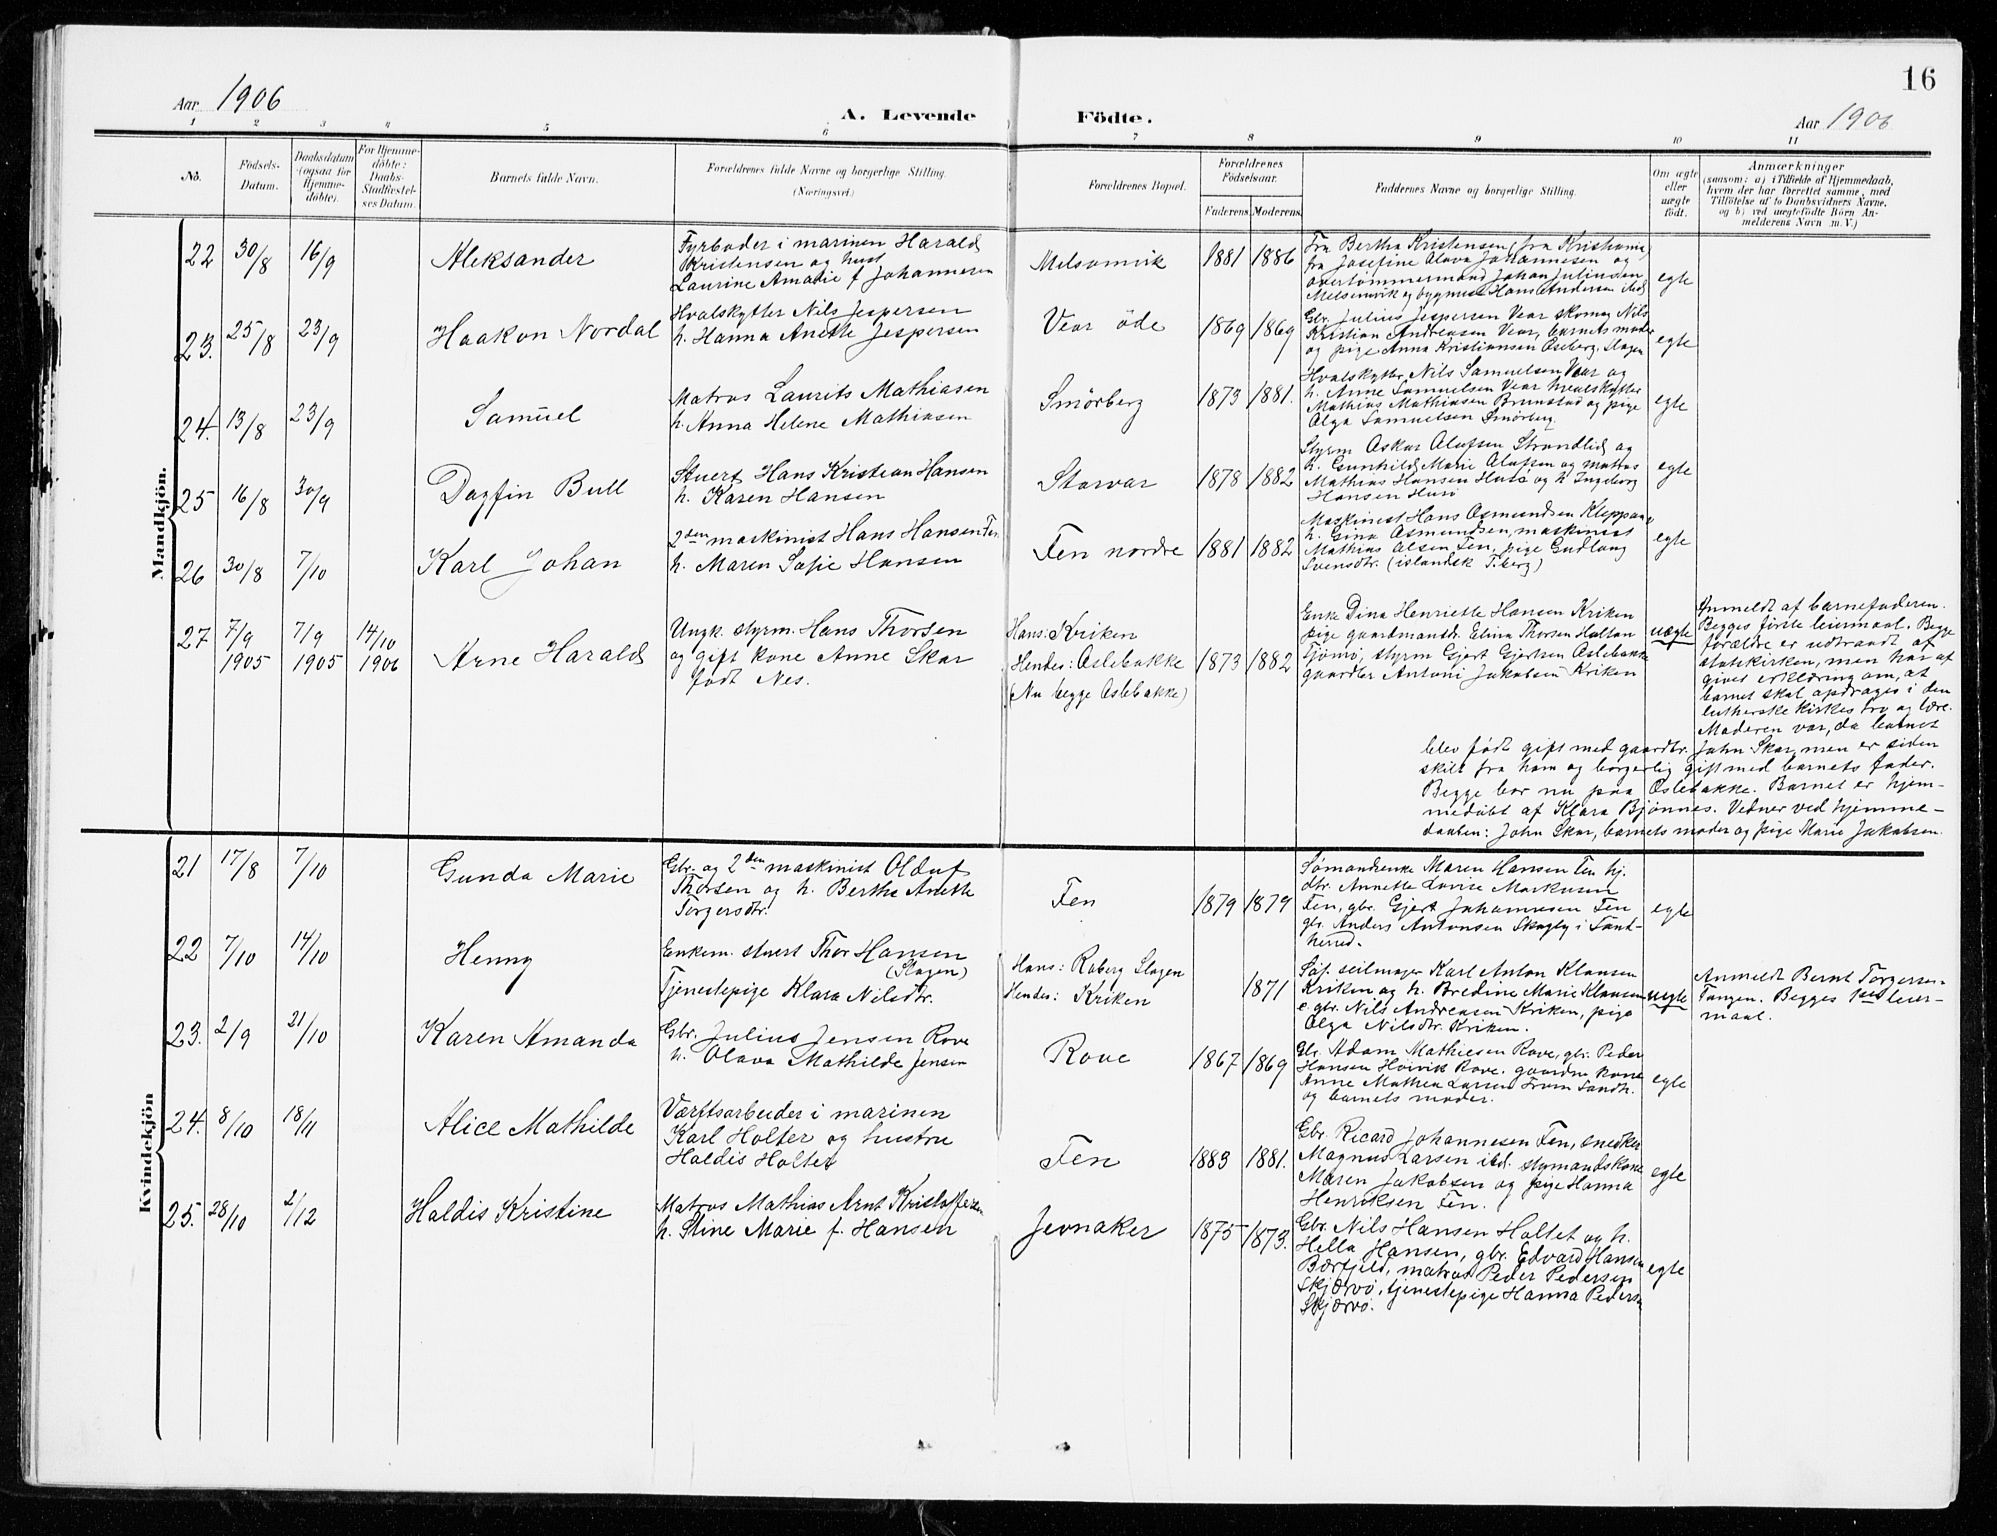 16
Aar 1906
A. Levende Födte.
Aar 1906
1 2 3 4 5 6 7 8 9 10 11
No.
Födsels-Datum.
Daabsdatum (ogsaa for Hjemme-döbte).
For Hjemme-döbte: Daabs-Stadfæstel-ses Datum.
Barnets fulde Navn.
Forældrenes fulde Navne og borgerlige Stilling.
(Næringsvei.)
Forældrenes Bopæl.
Forældrenes Födselsaar.
Faderens. Moderens.
Faddernes Navne og borgerlige Stilling.
Om ægte eller uægte födt.
Anmærkninger
(saasom: a) i Tilfælde af Hjemmedaab,
hvem der har forrettet samme, med
Tilföielse af to Daabsvidners Navne,
og b) ved uægtefödte Börn An-
melderens Navn m. V.)
Mandkjön.
22 30/8 16/9 Aleksander
Fyrböder i marinen Harald
Kristensen og hust
Laurine Amalie f Johannesen
Melsomvik 1881 1886
Fru Bertha Kristensen (fra Kristiania)
fru Josefine Olava Johannesen og
overtømmermand Johan Juliussen
Melsomvik og bygmest Hans Andersen ibid
egte
23. 25/8 23/9 Haakon Nordal
Hvalskytter Nils Jespersen
h. Hanna Anette Jespersen
Vear öde 1869 1869
Gbr. Julius Jespersen Vear skomag Nils
Kristian Andreasen Vear, barnets moder
og pige Anna Kristiansen Oseberg, Slagen
egte
24. 13/8 23/9 Samuel
Matros Laurits Mathiasen
h. Anna Helene Mathiasen
Smörberg 1873 1881.
Hvalskytter Nils Samuelsen Vear og
h. Anne Samuelsen Vear hvalskytter
Mathias Mathiasen Brunstad og pige
Olga Samuelsen Smörberg.
egte
25 16/8 30/9 Dagfin Bull
Stuert Hans Kristian Hansen
h. Karen Hansen
Storvar 1878 1882
Styrm Oskar Olafsen Strandlid og
h. Gunhild Marie Olafsen og matros
Mathias Hansen Husö og h Ingeborg
Hansen Husö
egte
26 30/8 7/10 Karl Johan
2den maskinist Hans Hansen Fen
h. Maren Sofie Hansen
Fen nordre 1881 1882
Maskinist Hans Osmundsen Kleppan
h. Gina Osmundsen, maskinist
Mathias Olsen Fen, pige Gudlaug
Svensdtr. (islandsk T.berg)
egte
27 7/9 1905 7/9 1905 14/10 1906 Arne Harald
Ungk. styrm. Hans Thorsen
og gift kone Anne Skar
født Nes.
Hans: Kriken
Hendes: Oslebakke
(Nu begge Oslebakke)
1873 1882
Enke Dina Henriette Hansen Kriken
pige gaardmandsdr. Elina Thorsen Holtan
Tjömö, styrm Gjert Gjertsen Oslebakke
gaardbr Antoni Jakobsen Kriken
uegte
Anmeldt af barnefaderen.
Begges første leiermaal. Begge
forældre er udtraadt af
statskirken, men har af
givet erklæring om, at
barnet skal opdrages i den
lutherske kirkes tro og lære.
Moderen var, da barnet
blev født gift med gaardbr. John Skar, men er siden
skilt fra ham og borgerlig gift med barnets fader.
Begge bor nu paa Oslebakke. Barnet er hjem-
medöbt af Klara Bjönnes. Vidner ved hjemme-
daaben: John Skar, barnets moder og pige Marie Jakobsen.
Kvindekjön
21 17/8 7/10 Gunda Marie
Gbr. og 2den maskinist Olduf
Thorsen og h. Berthe Anette
Torgersdtr.
Fen 1879 1879
Sømandsenke Maren Hansen Fen hj.
dtr. Annette Lovise Markussen
Fen, gbr. Gjert Johannesen Fen
gbr. Anders Antonsen Skagby i Sand-
herred.
egte
22 7/10 14/10 Henny
Enkem. stuert Thor Hansen
(Slagen)
Tjenestepige Klara Nilsdtr.
Hans: Roberg Slagen
Hendes: Kriken
1871
Söf. seilmager Karl Anton Klausen
Kriken og h. Bredine Marie Klausen
e. gbr. Nils Andreasen Kriken, pige
Olga Nilsdtr. Kriken.
uegte
Anmeldt Bernt Torgersen
Tangen. Begges 1ste leier-
maal.
23. 2/9 21/10 Karen Amanda
Gbr. Julius Jensen Rove
h. Olava Mathilde Jensen
Rove 1867 1869
Gbr. Adam Mathiesen Rove, gbr. Peder
Hansen Hoivik Rove. gaardm kone
Anne Mathea Larsen Fram Sandh.
og barnets moder.
egte
24. 8/10 18/11 Alice Mathilde
Værftsarbeider i marinen
Karl Holter og hustru
Haldis Holter
Fen 1883 1881.
Gbr. Ricard Johannesen Fen, snedker
Magnus Larsen ibd. styrmandskone
Maren Jakobsen og pige Hanna
Henriksen Fen.
egte
25. 28/10 2/12 Haldis Kristine
Matros Mathias Arnt Kristoffersen
h. Stine Marie f. Hansen
Jevnaker 1875 1873.
Gbr. Nils Hansen Holtet og h.
Hella Hansen, gbr. Edvard Hansen
Bærfjeld, matros Peder Pedersen
Skjærvö, tjenestepige Hanna Pedersen
Skjærvö.
egte